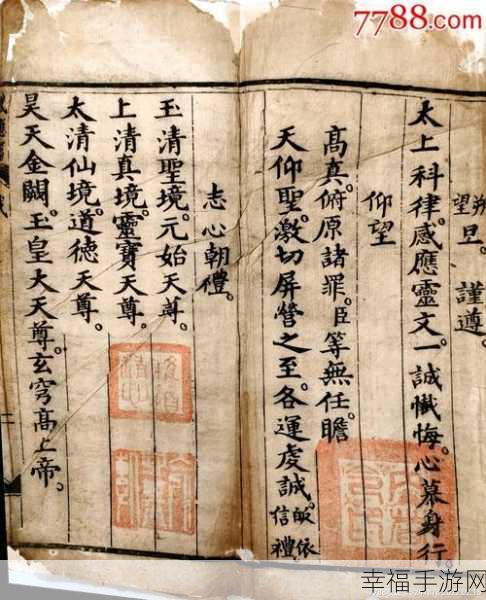 7788.com
朔
望 旦。謹遵。
太上科律。感應靈文。一誠懺悔。心慕身行。
仰望
高真。俯原諸罪。臣等無任瞻
天仰聖。激切屏營之至。各運虔誠。皈依
信禮
志心朝禮。
玉清聖境。元始天尊。
上清真境。靈寶天尊。
太清仙境。道德天尊。
昊天金闕。玉皇大天尊。玄穹高上帝。
幸福手游网